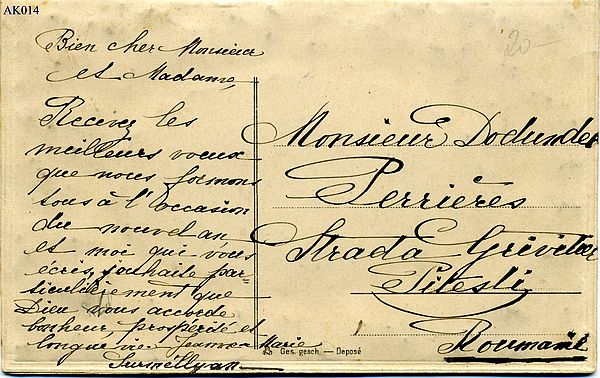 AK014
20-
Bien cher Monsieur
et Madame,
Recevez les
meilleurs voeux
que nous formons
tous à l'occasion
du nouvel an
et moi qui vous
écris, souhaite par-
ticulièrement que
Dieu vous accorde
bonheur, prosperité et
longue vie. Jeanne Marie
Monsieur Dodunder
Perrières
Strada
Pitesti
Roumanie
Ges. gesch. — Deposé